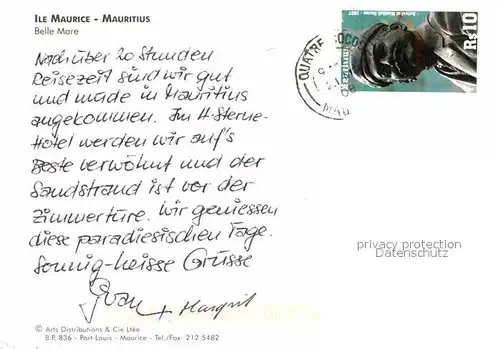 ILE MAURICE - MAURITIUS
Belle Mare
Nach über 20 Stunden
Reisezeit sind wir gut
und müde in Mauritius
angekommen. Im 4-Sterne-
Hotel werden wir auf's
Beste verwöhnt und der
Sandstrand ist vor der
Zimmertüre. Wir geniessen
diese paradiesischen Tage.
Sonnig-heisse Grüsse
Yvan + Margrit
© Arts Distributions & Cie Ltée
B.P. 836 - Port-Louis - Maurice - Tel./Fax: 212 5482
QUATRE
MAU
Mauritius
Rs 10
privacy protection
Datenschutz